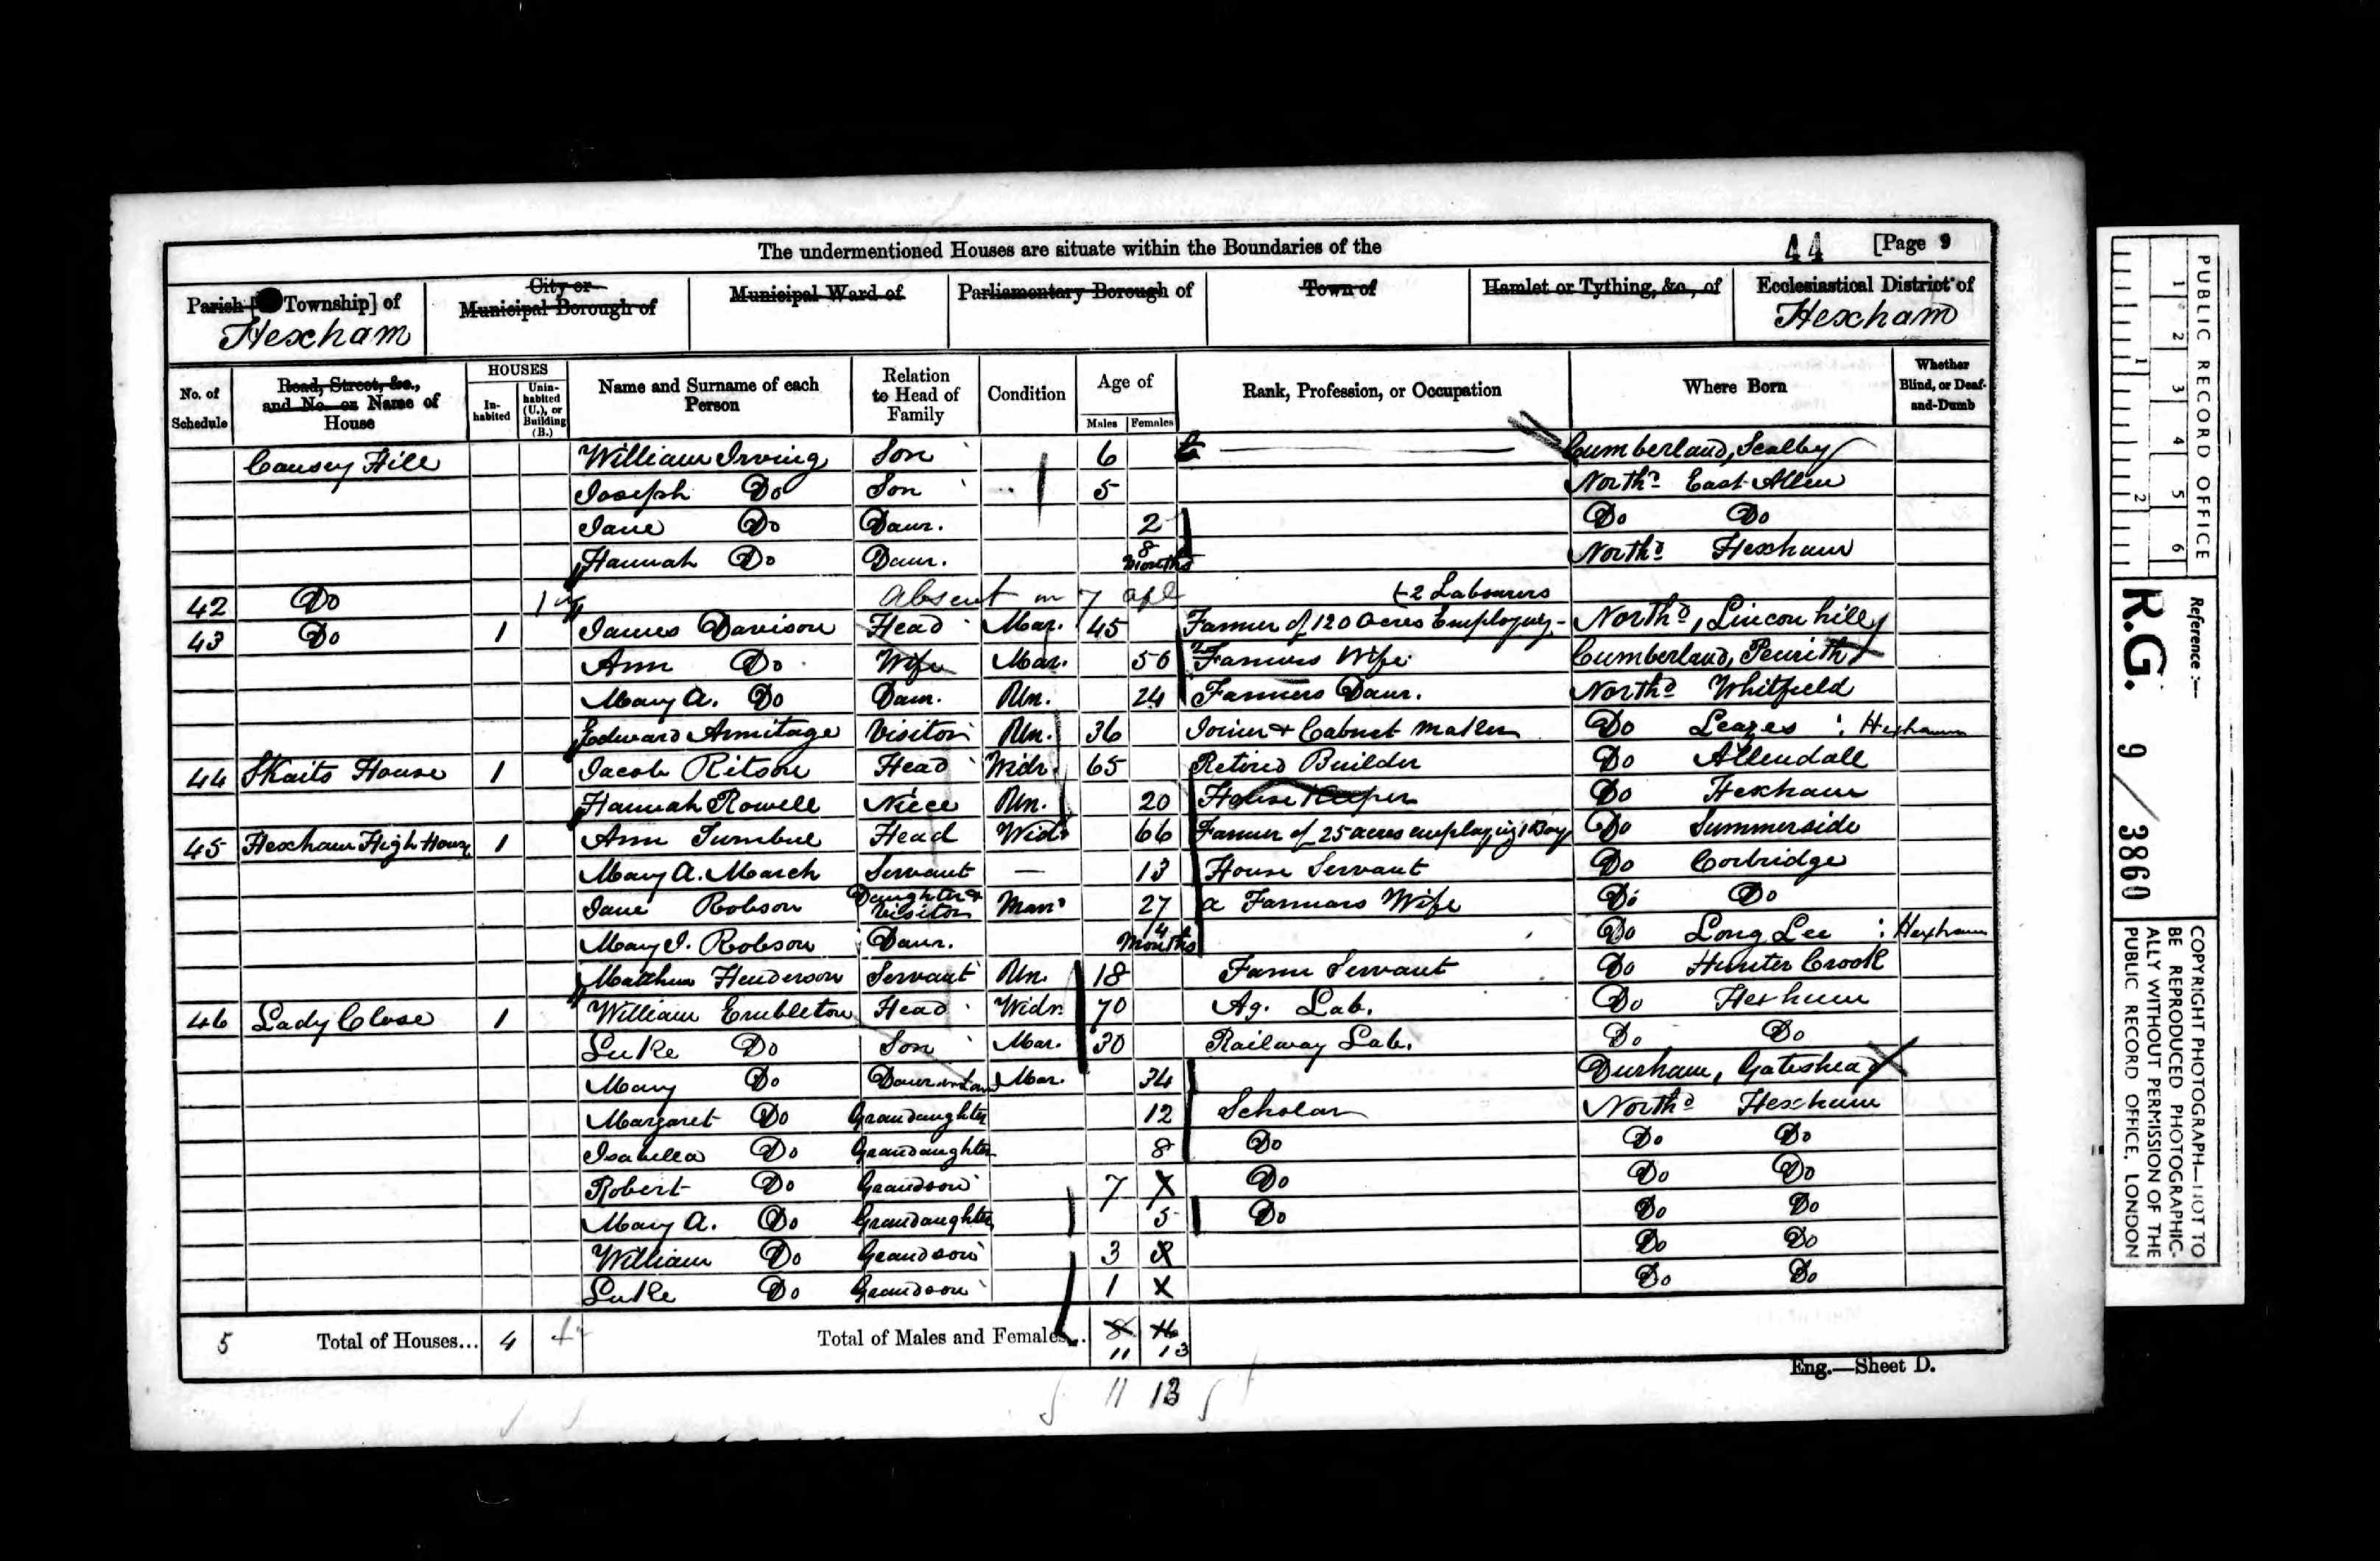 The undermentioned Houses are situate within the Boundaries of the 44 [Page 9
Parish [ Township] of Hexham
City or Municipal Borough of
Municipal Ward of
Parliamentary Borough of
Town of
Hamlet or Tything, &c., of
Ecclesiastical District of Hexham
No. of Schedule
Road, Street, &c., and No. or Name of House
HOUSES
In-habited
Unin-habited (U.), or Building (B.)
Name and Surname of each Person
Relation to Head of Family
Condition
Age of
Males Females
Rank, Profession, or Occupation
Where Born
Whether Blind, or Deaf-and-Dumb
Causey Hill William Irving Son 6 Cumberland, Scalby
Joseph Do Son 5 Northd East Allen
Jane Do Daur. 2 Do Do
Hannah Do Daur. 8 Months Northd Hexham
42 Do 1 Absent
43 Do 1 James Davison Head Mar. 45 Farmer of 120 Acres Employing 2 Labourers Northd, Lincon hill
Ann Do Wife Mar. 56 Farmers Wife Cumberland, Penrith
Mary A. Do Daur. Un. 24 Farmers Daur. Northd Whitfield
Edward Armitage Visitor Un. 36 Joiner & Cabinet Maker Do Leazes : Hexham
44 Skaits House 1 Jacob Ritson Head Widr. 65 Retired Builder Do Allendall
Hannah Rowell Niece Un. 20 House Keeper Do Hexham
45 Hexham High House 1 Ann Turnbul Head Wid. 66 Farmer of 25 acres employing 1 Boy Do Summerside
Mary A. March Servant — 13 House Servant Do Corbridge
Jane Robson Daughter & Visitor Marr 27 a Farmars Wife Do Do
Mary J. Robson Daur. Months Do Long Lee : Hexham
Matthew Henderson Servant Un. 18 Farm Servant Do Hunter Crook
46 Lady Close 1 William Embleton Head Widr. 70 Ag. Lab. Do Hexham
Luke Do Son Mar. 30 Railway Lab. Do Do
Mary Do Daur in Law Mar. 34 Durham, Gateshead
Margaret Do Grandaughter 12 Scholar Northd Hexham
Isabella Do Grandaughter 8 Do Do Do
Robert Do Grandson 7 Do Do Do
Mary A. Do Grandaughter 5 Do Do Do
William Do Grandson 3 Do Do
Luke Do Grandson 1 Do Do
5 Total of Houses... 4 Total of Males and Females... 8 16
11 13
Eng.—Sheet D.
11 13
PUBLIC RECORD OFFICE
1 2 3 4 5 6
1 2
Reference :—
R.G. 9 / 3860
COPYRIGHT PHOTOGRAPH—NOT TO
BE REPRODUCED PHOTOGRAPHIC-
ALLY WITHOUT PERMISSION OF THE
PUBLIC RECORD OFFICE, LONDON